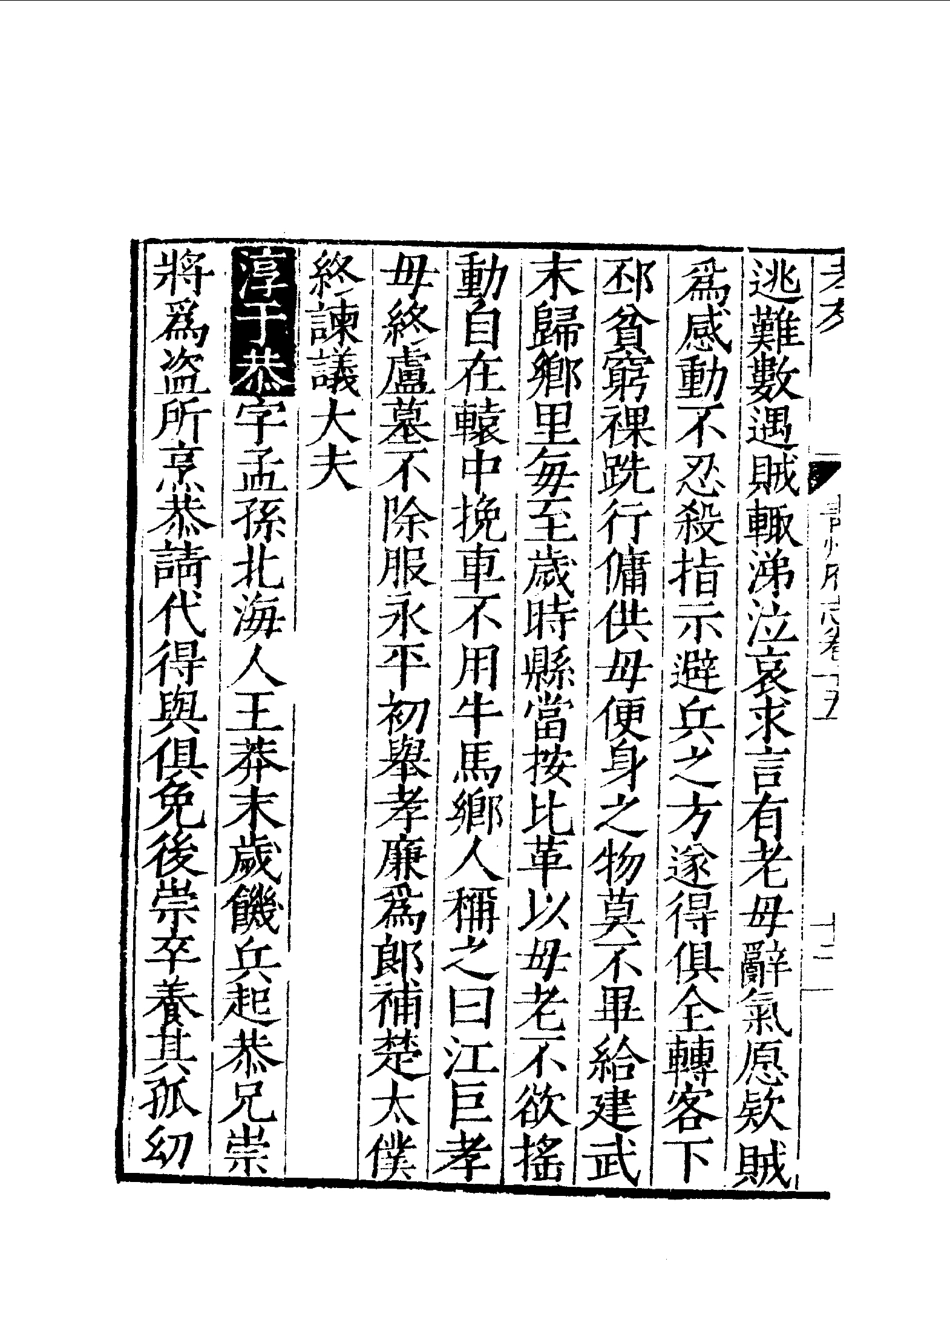 逃難數遇賊輙涕泣哀求言有老母辭氣愿欵賊
爲感動不忍殺指示避兵之方遂得俱全轉客下
邳貧窮祼跣行傭供母便身之物莫不畢給建武
末歸鄉里每至歲時縣當按比革以母老不欲搖
動自在轅中挽車不用牛馬鄉人稱之曰江巨孝
母終廬墓不除服永平初舉孝廉爲郎補楚太僕
終諫議大夫
淳于恭字孟孫北海人王莽末歲饑兵起恭兄崇
將爲盜所烹恭請代得與俱免後崇卒養其孤幼